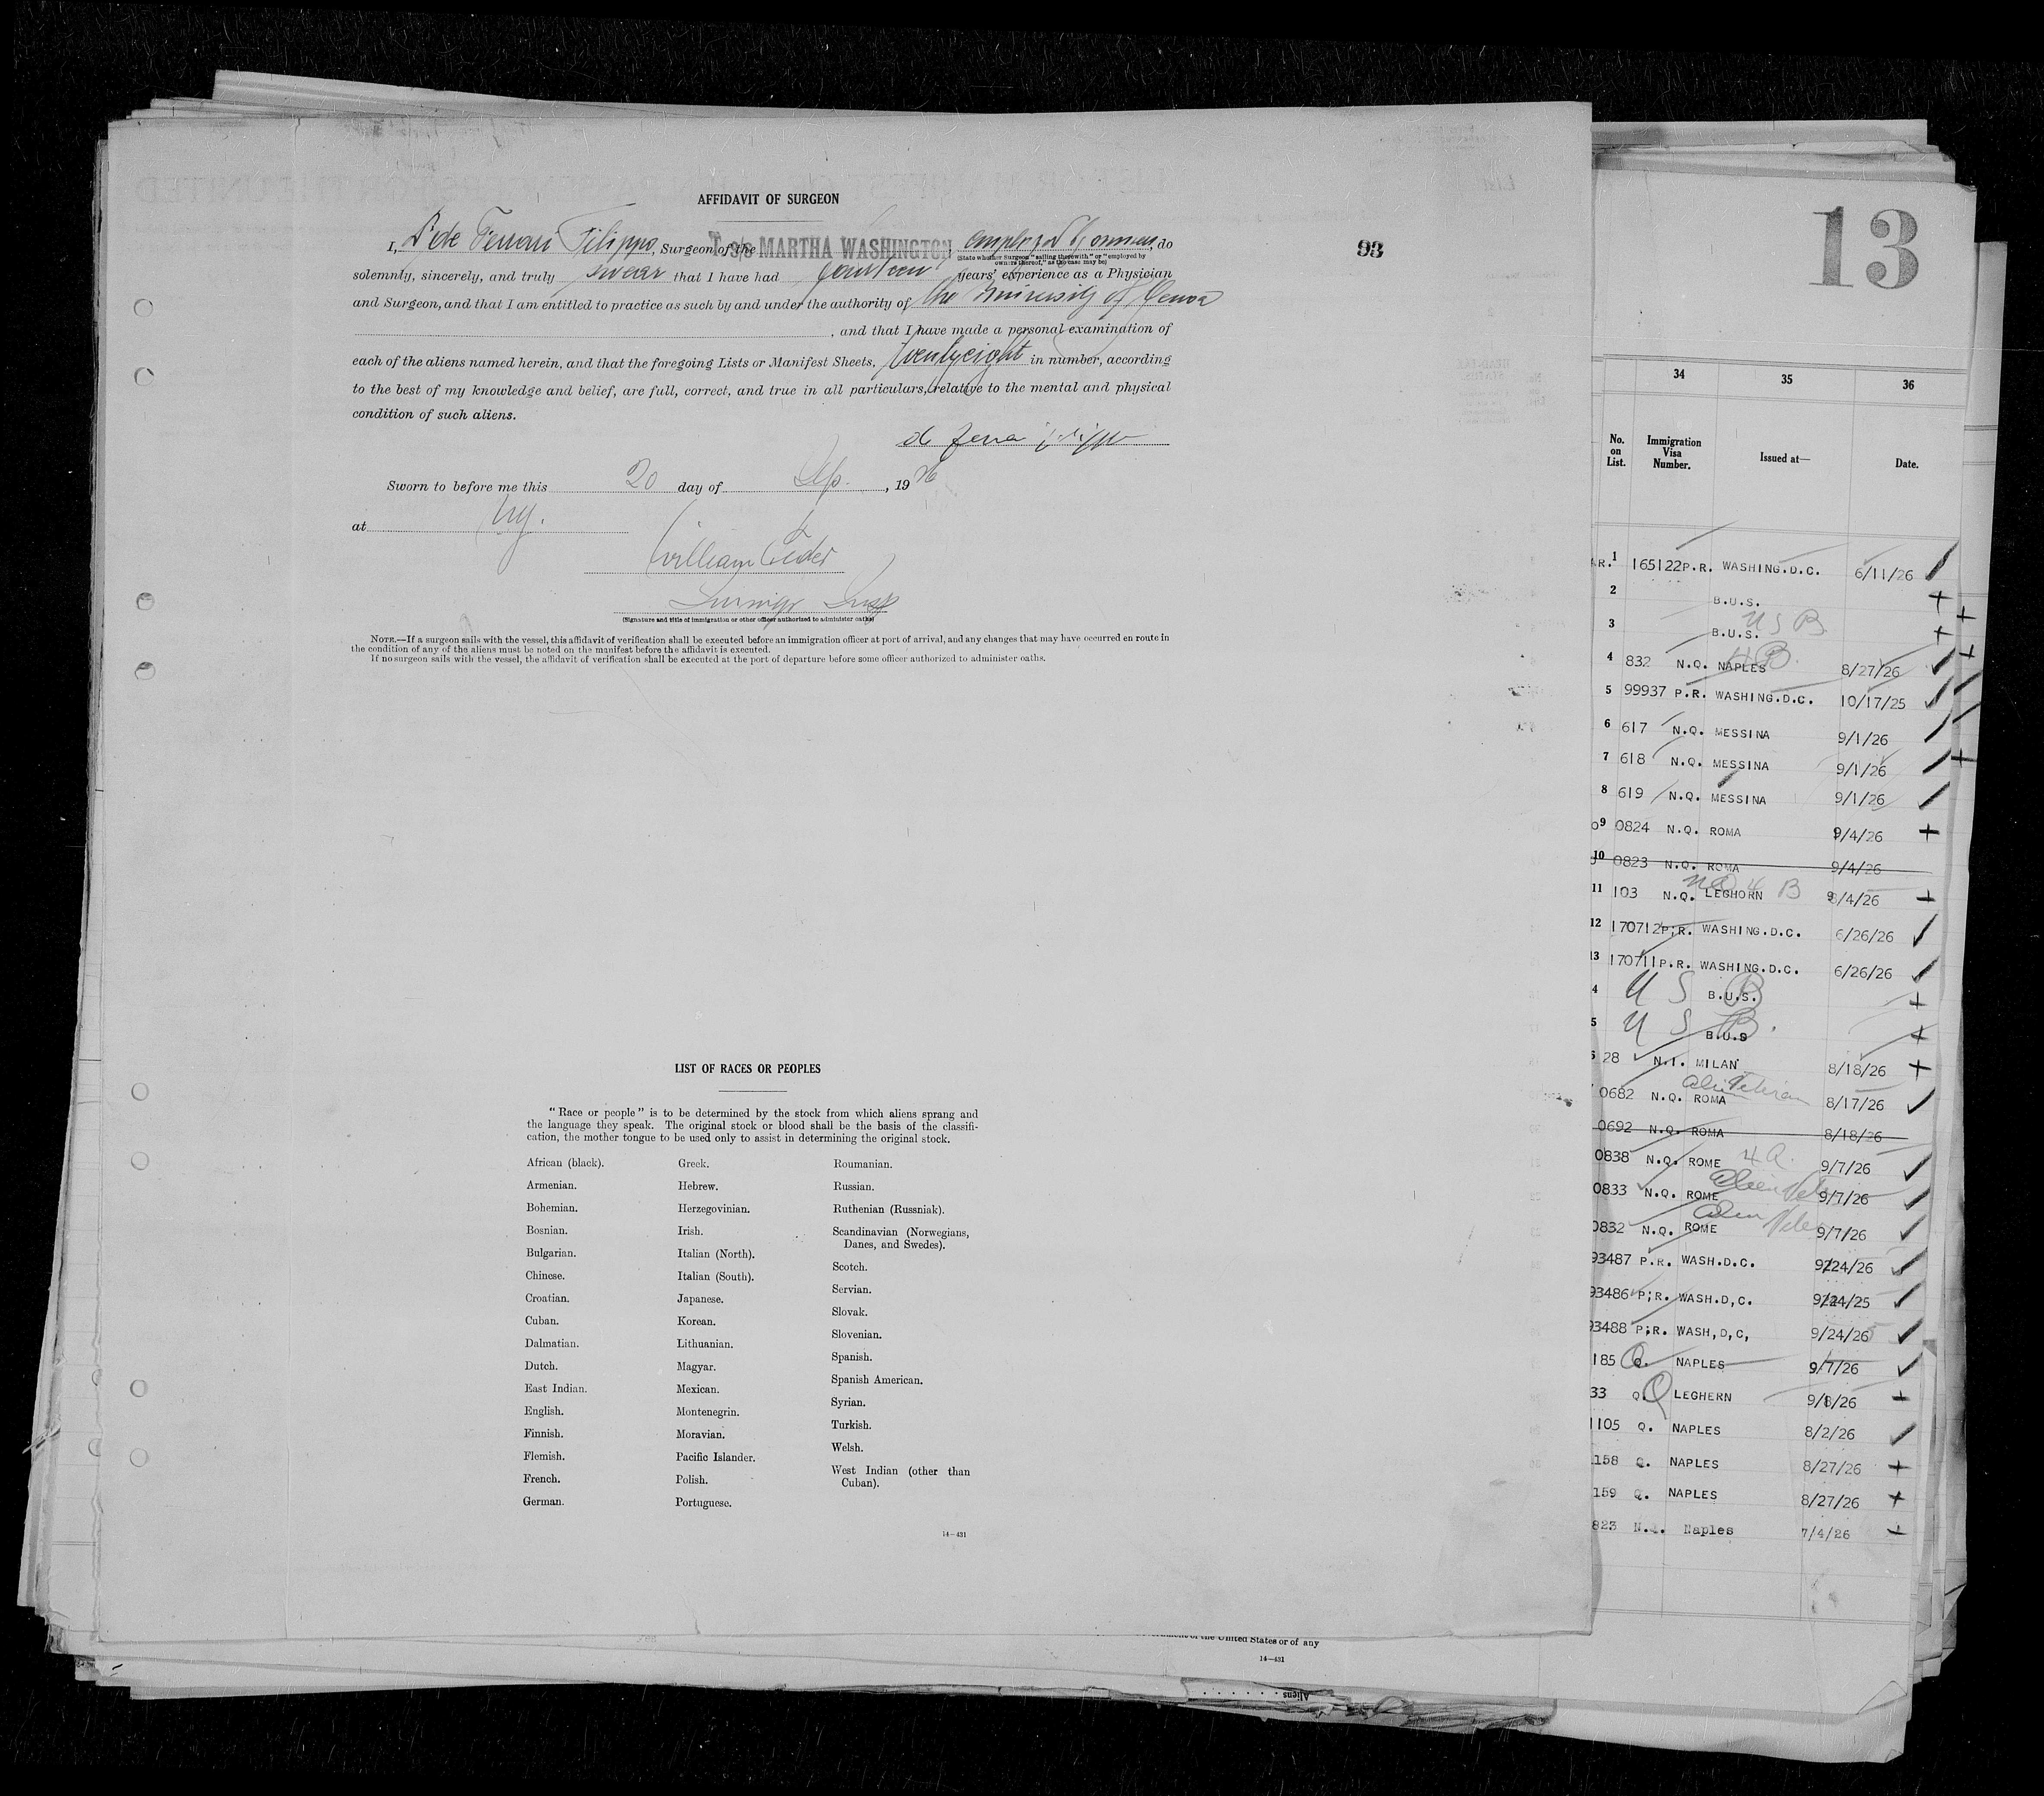 AFFIDAVIT OF SURGEON
I, de Ferrari Filippo, Surgeon of the T. S/S MARTHA WASHINGTON, employed by owners, do
(State whether Surgeon "sailing therewith" or "employed by owners thereof," as the case may be)
solemnly, sincerely, and truly swear that I have had fourteen years' experience as a Physician
and Surgeon, and that I am entitled to practice as such by and under the authority of the University of Genoa
, and that I have made a personal examination of
each of the aliens named herein, and that the foregoing Lists or Manifest Sheets, twentyeight in number, according
to the best of my knowledge and belief, are full, correct, and true in all particulars, relative to the mental and physical
condition of such aliens.
Sworn to before me this 20 day of Sep., 1926
at NY.
William
Immigr Insp
(Signature and title of immigration or other officer authorized to administer oaths)
NOTE.—If a surgeon sails with the vessel, this affidavit of verification shall be executed before an immigration officer at port of arrival, and any changes that may have occurred en route in
the condition of any of the aliens must be noted on the manifest before the affidavit is executed.
If no surgeon sails with the vessel, the affidavit of verification shall be executed at the port of departure before some officer authorized to administer oaths.
93
LIST OF RACES OR PEOPLES
"Race or people" is to be determined by the stock from which aliens sprang and
the language they speak. The original stock or blood shall be the basis of the classifi-
cation, the mother tongue to be used only to assist in determining the original stock.
African (black).
Armenian.
Bohemian.
Bosnian.
Bulgarian.
Chinese.
Croatian.
Cuban.
Dalmatian.
Dutch.
East Indian.
English.
Finnish.
Flemish.
French.
German.
Greek.
Hebrew.
Herzegovinian.
Irish.
Italian (North).
Italian (South).
Japanese.
Korean.
Lithuanian.
Magyar.
Mexican.
Montenegrin.
Moravian.
Pacific Islander.
Polish.
Portuguese.
Roumanian.
Russian.
Ruthenian (Russniak).
Scandinavian (Norwegians,
Danes, and Swedes).
Scotch.
Servian.
Slovak.
Slovenian.
Spanish.
Spanish American.
Syrian.
Turkish.
Welsh.
West Indian (other than
Cuban).
14—431
13
34 35 36
No. on List. Immigration Visa Number. Issued at— Date.
1 165122 P.R. WASHING.D.C. 6/11/26
2 B.U.S.
3 B.U.S. U S B
4 832 N.Q. NAPLES 8/27/26
5 99937 P.R. WASHING.D.C. 10/17/25
6 617 N.Q. MESSINA 9/1/26
7 618 N.Q. MESSINA 9/1/26
8 619 N.Q. MESSINA 9/1/26
9 0824 N.Q. ROMA 9/4/26
10 0823 N.Q. ROMA 9/4/26
11 103 N.Q. LEGHORN 9/4/26
12 170712 P;R. WASHING.D.C. 6/26/26
13 170711 P.R. WASHING.D.C. 6/26/26
4 U S B B.U.S.
5 U S B. B.U.S
6 28 N.I. MILAN 8/18/26
0682 N.Q. ROMA 8/17/26
0692 N.Q. ROMA 8/18/26
0838 N.Q. ROME 9/7/26
0833 N.Q. ROME 9/7/26
0832 N.Q. ROME 9/7/26
93487 P.R. WASH.D.C. 9/24/26
93486 P;R. WASH.D,C. 9/24/25
93488 P;R. WASH,D,C, 9/24/26
185 Q. NAPLES 9/7/26
33 Q. LEGHERN 9/8/26
1105 Q. NAPLES 8/2/26
1158 Q. NAPLES 8/27/26
159 Q. NAPLES 8/27/26
823 N. Naples 7/4/26
of the United States or of any
14—431
Aliens